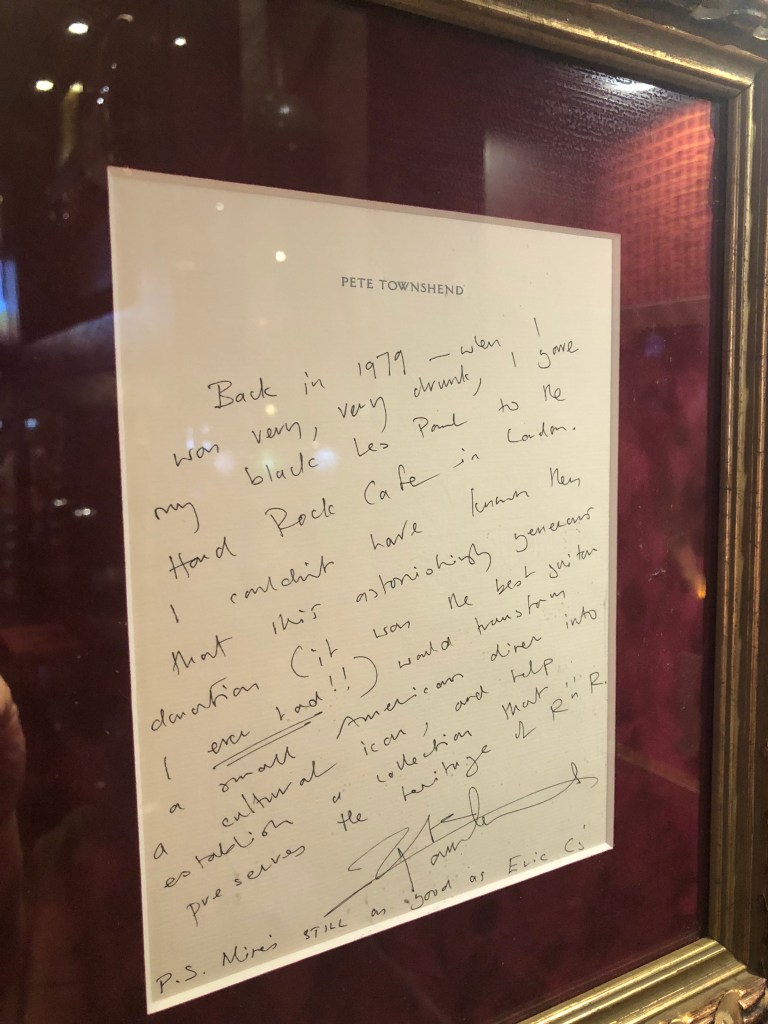 PETE TOWNSHEND
Back in 1979 – when I
was very, very drunk, I gave
my black Les Paul to the
Hard Rock Cafe in London.
I couldn't have known then
that this astonishingly generous
donation (it was the best guitar
I ever had!!) would transform
a small American diner into
a cultural icon, and help
establish a collection that
preserves the heritage of R"n"R.
Pete Townshend
P.S. Mine's STILL as good as Eric C's